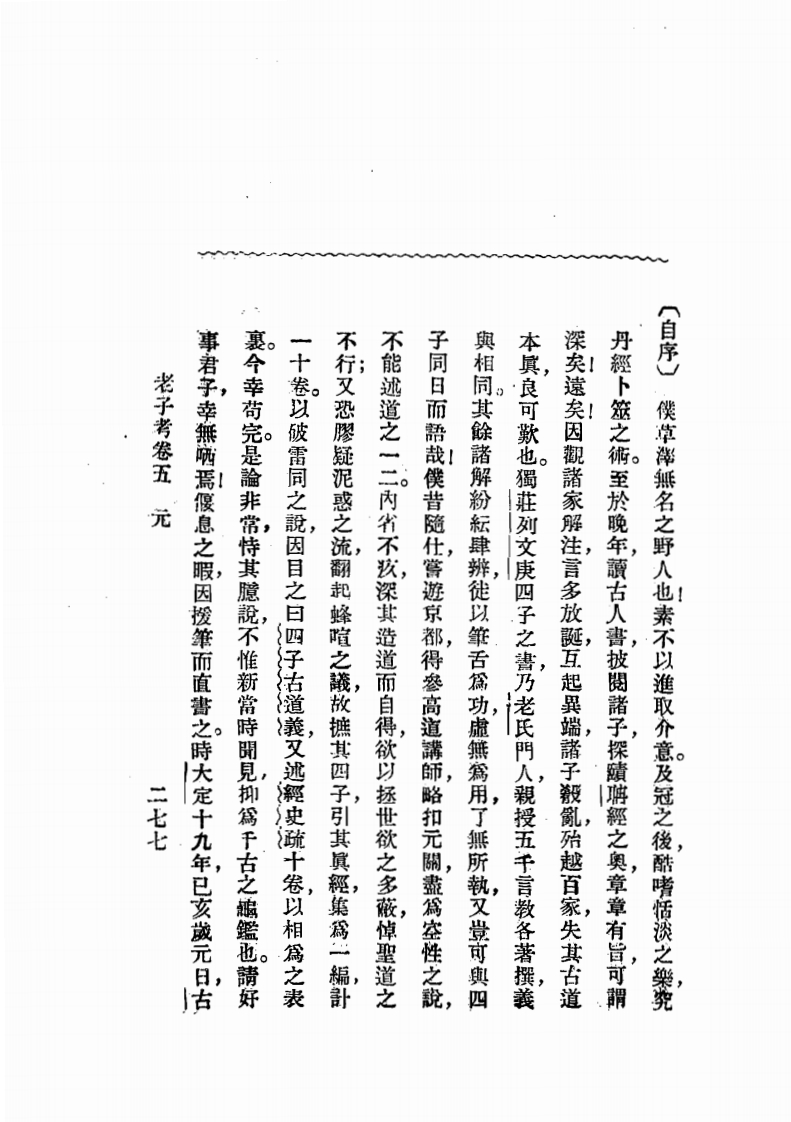 〔自序〕　僕草澤無名之野人也！素不以進取介意。及冠之後，酷嗜恬淡之樂，究
丹經卜筮之術。至於晚年，讀古人書，披閱諸子，探賾聃經之奧，章章有旨，可謂
深矣！遠矣！因觀諸家解注，言多放誕，互起異端，諸子殽亂，殆越百家，失其古道
本眞，良可歎也。獨莊列文庚四子之書，乃老氏門人，親授五千言教，各著撰，義
與相同。其餘諸解紛紜肆辨，徒以筆舌爲功，虛無爲用，了無所執，又豈可與四
子同日而語哉！僕昔隨仕，嘗遊京都，得參高道講師，略扣元關，盡爲空性之說，
不能述道之一二。內省不疚，深其造道而自得，欲以拯世欲之多蔽，悼聖道之
不行；又恐膠疑泥惑之流，翻起蜂喧之議，故摭其四子，引其眞經，集爲一編，計
一十卷。以破雷同之說，因目之曰四子古道義，又述經史疏十卷，以相爲之表
裏。今幸苟完。是論非常，恃其臆說，不惟新當時聞見，抑爲千古之龜鑑也。請好
事君子，幸無哂焉！偃息之暇，因援筆而直書之。時大定十九年，已亥歲元日，古
老子考卷五　元　二七七